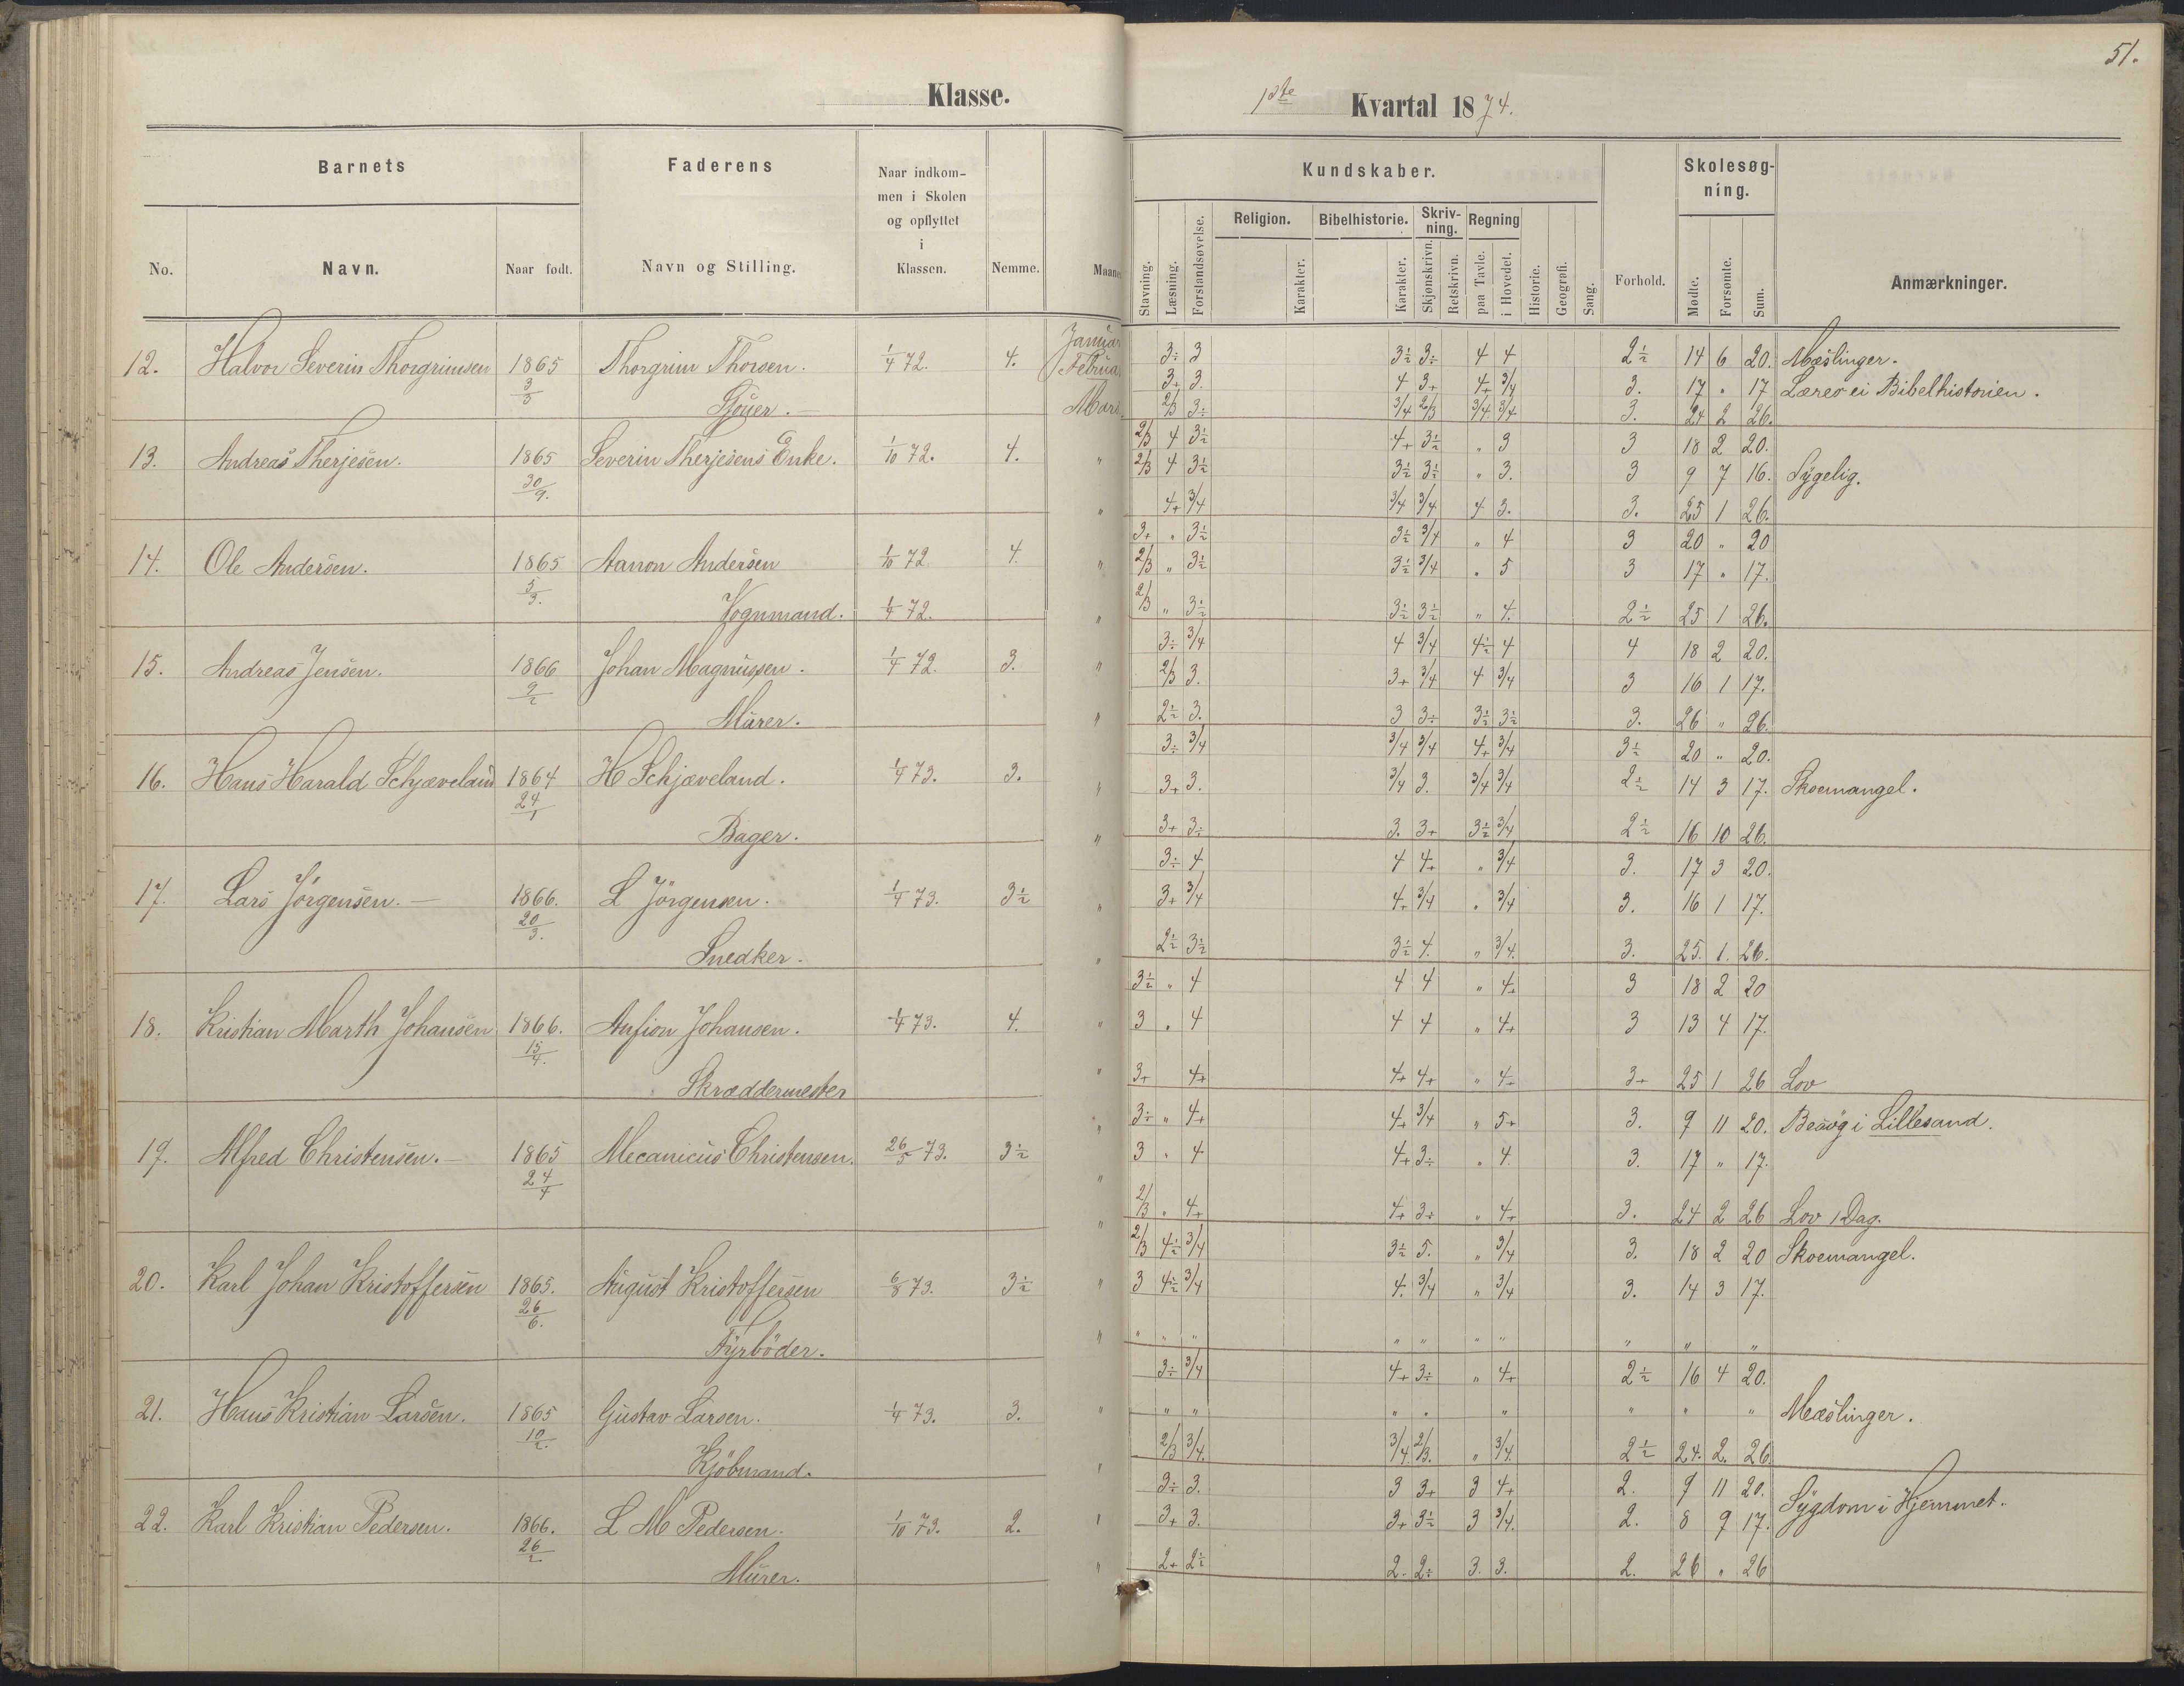 51.
Klasse.
1ste Kvartal 1874.
Barnets
Faderens
Naar indkommen i Skolen og opflyttet i Klassen.
Kundskaber.
Skolesøgning.
No.
Navn.
Naar født.
Navn og Stilling.
Nemme.
Stavning.
Læsning.
Forstandsøvelse.
Religion.
Karakter.
Bibelhistorie.
Karakter.
Skrivning.
Skjønskrivn.
Retskrivn.
Regning
paa Tavle.
i Hovedet.
Historie.
Geografi.
Sang.
Forhold.
Mødte.
Forsømte.
Sum.
Anmærkninger.
12. Halvor Severin Thorgrimsen 1865 Thorgrim Thorsen. 1/4 72. 4. Januar 3÷ 3 3½ 3÷ 4 4 2½ 14 6 20. Mæslinger.
Februar 3+ 3. 4 3+ 4+ 3/4 3. 17 " 17 Lærer ei Bibelhistorien.
Mars 2/3 3÷ 3/4 2/3 3/4 3/4 3. 24 2 26.
13. Andreas Therjesen. 1865 30/9. Severin Therjesens Enke. 1/10 72. 4.
2/3 4 3½ 4+ 3½ " 3 3 18 2 20.
2/3 4 3½ 3½ 3½ " 3. 3 9 7 16. Sygelig.
4+ 3/4 3/4 3/4 4 3. 3. 25 1 26.
14. Ole Andersen. 1865 Aanon Andersen 1/10 72. 4.
Vognmand. 1/4 72.
3+ " 3½ 3½ 3/4 " 4 3 20 " 20
2/3 " 3½ 3½ 3/4 " 5 3 17 " 17.
2/3 " 3½ 3½ 3½ " 4. 2½ 25 1 26.
15. Andreas Jensen. 1866 9/2 Johan Magnussen. 1/4 72. 3.
Murer.
3÷ 3/4 4 3/4 4½ 4 4 18 2 20.
2/3 3. 3+ 3/4 4 3/4 3 16 1 17.
2½ 3. 3 3÷ 3½ 3½ 3. 26 " 26.
16. Hans Harald Schjæveland 1864 24/1 H Schjæveland. 1/4 73. 3.
Bager.
3÷ 3/4 3/4 3/4 4+ 3/4 3½ 20 " 20.
3+ 3. 3/4 3. 3/4 3/4 2½ 14 3 17. Skoemangel.
3+ 3÷ 3. 3+ 3½ 3/4 2½ 16 10 26.
17. Lars Jørgensen. 1866. 20/3. L Jörgensen. 1/4 73. 3½
Snedker.
3÷ 4 4 4+ " 3/4 3. 17 3 20.
3+ 3/4 4+ 3/4 " 3/4 3. 16 1 17.
2½ 3½ 3½ 4. " 3/4. 3. 25. 1. 26.
18. Kristian Marth Johansen 1866. 15/4. Anfion Johansen. 1/4 73. 4.
Skræddermester
3½ " 4 4 4 " 4+ 3 18 2 20
3 " 4 4 4 " 4+ 3 13 4 17.
3+ 4+ 4+ 4+ " 4+ 3+ 25 1 26 Lov
19. Alfred Christensen. 1865 24/4 Mecanicus Christensen. 26/5 73. 3½
3÷ " 4+ 4+ 3/4 " 5+ 3. 9 11 20. Besøg i Lillesand.
3 " 4 4+ 3÷ " 4. 3. 17 " 17.
2/3 " 4+ 4+ 3+ " 4+ 3. 24 2 26 Lov 1 Dag.
20. Karl Johan Kristoffersen 1865. 26/6. August Kristoffersen 6/8 73. 3½
Fyrböder.
2/3 4½ 3/4 3½ 5. " 3/4 3. 18 2 20 Skoemangel.
3 4½ 3/4 4. 3/4 " 3/4 3. 14 3 17.
" " " " " " " " " "
21. Hans Kristian Larsen. 1865 10/2. Gustav Larsen. 1/4 73. 3.
Kjöbmand.
3÷ 3/4 4+ 3÷ " 4+ 2½ 16 4 20.
" " " " " " " " Mæslinger.
2/3 3/4. 3/4 2/3. " 3/4. 2½ 24. 2. 26.
22. Karl Kristian Pedersen. 1866. 26/2 L M Pedersen. 1/10 73. 2.
Murer.
3÷ 3. 3 3+ 3 4+ 2. 9 11 20. Sygdom i Hjemmet.
3+ 3. 3+ 3½ 3 3/4. 2. 8 9 17.
2+ 2½ 2. 2÷ 3. 3. 2. 26 " 26